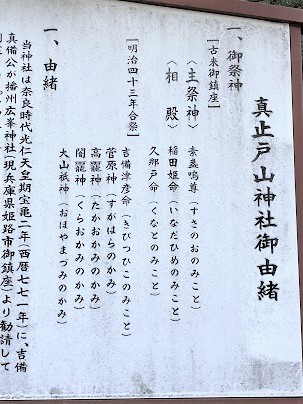 真止戸山神社御由緒
一、御祭神
［古来御鎮座］
〈主祭神〉 素戔嗚尊（すさのおのみこと）
〈相殿〉 稲田姫命（いなだひめのみこと）
久那戸命（くなどのみこと）
［明治四十三年合祭］
吉備津彦命（きびつひこのみこと）
菅原神（すがはらのかみ）
高龗神（たかおかみのかみ）
闇龗神（くらおかみのかみ）
大山祇神（おほやまづみのかみ）
一、由緒
当神社は奈良時代光仁天皇期宝亀二年（西暦七七一年）に、吉備
真備公が播州広峯神社（現兵庫県姫路市御鎮座）より勧請して